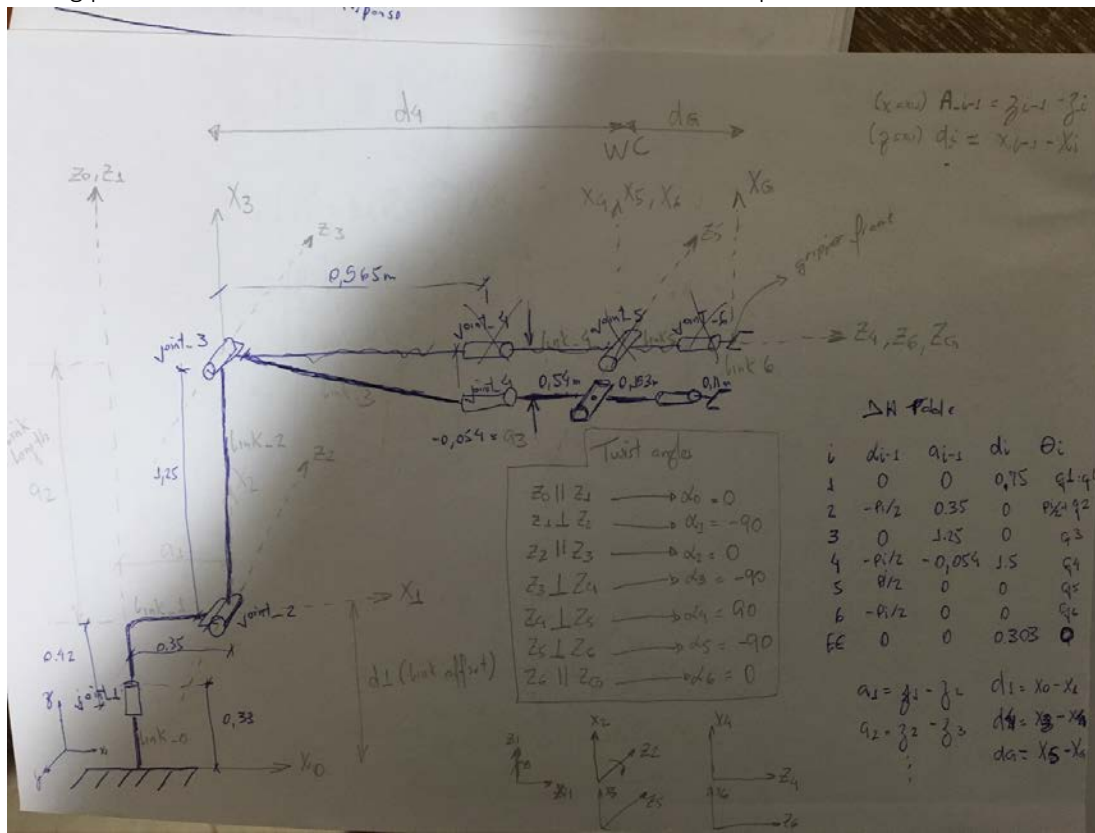 d4
dG
WC
(x axis) A_i-1 = z i-1 - z i
(z axis) di = x i-1 - Xi
Z0, Z1
X3
Z3
X4, X5, X6
XG
Z5
gripper front
0,965m
joint_3
joint_4
link_4
joint_5
link 6
Z4, Z6, ZG
link_3
joint_4
0,54m
0,193m
0,11m
-0,054 = a3
length
a2
1,25
link_2
X2
Z2
a1
link_1
0.35
joint_2
X1
0.42
joint_1
0,33
link_0
d1 (link offset)
X0
Twist angles
Z0 || Z1 → α0 = 0
Z1 ⊥ Z2 → α1 = -90
Z2 || Z3 → α2 = 0
Z3 ⊥ Z4 → α3 = -90
Z4 ⊥ Z5 → α4 = 90
Z5 ⊥ Z6 → α5 = -90
Z6 || ZG → α6 = 0
DH Table
i αi-1 ai-1 di θi
1 0 0 0,75
2 -Pi/2 0.35 0
3 0 1.25 0 q3
4 -Pi/2 -0,054 1.5 q4
5 Pi/2 0 0 q5
6 -Pi/2 0 0 q6
EE 0 0 0.303 0
a1 = z1 - z2 d1 = X0 - X1
a2 = z2 - z3
dG = X5 - XG
Z1
X2
Z2
Z5
X4
Z4
Z6